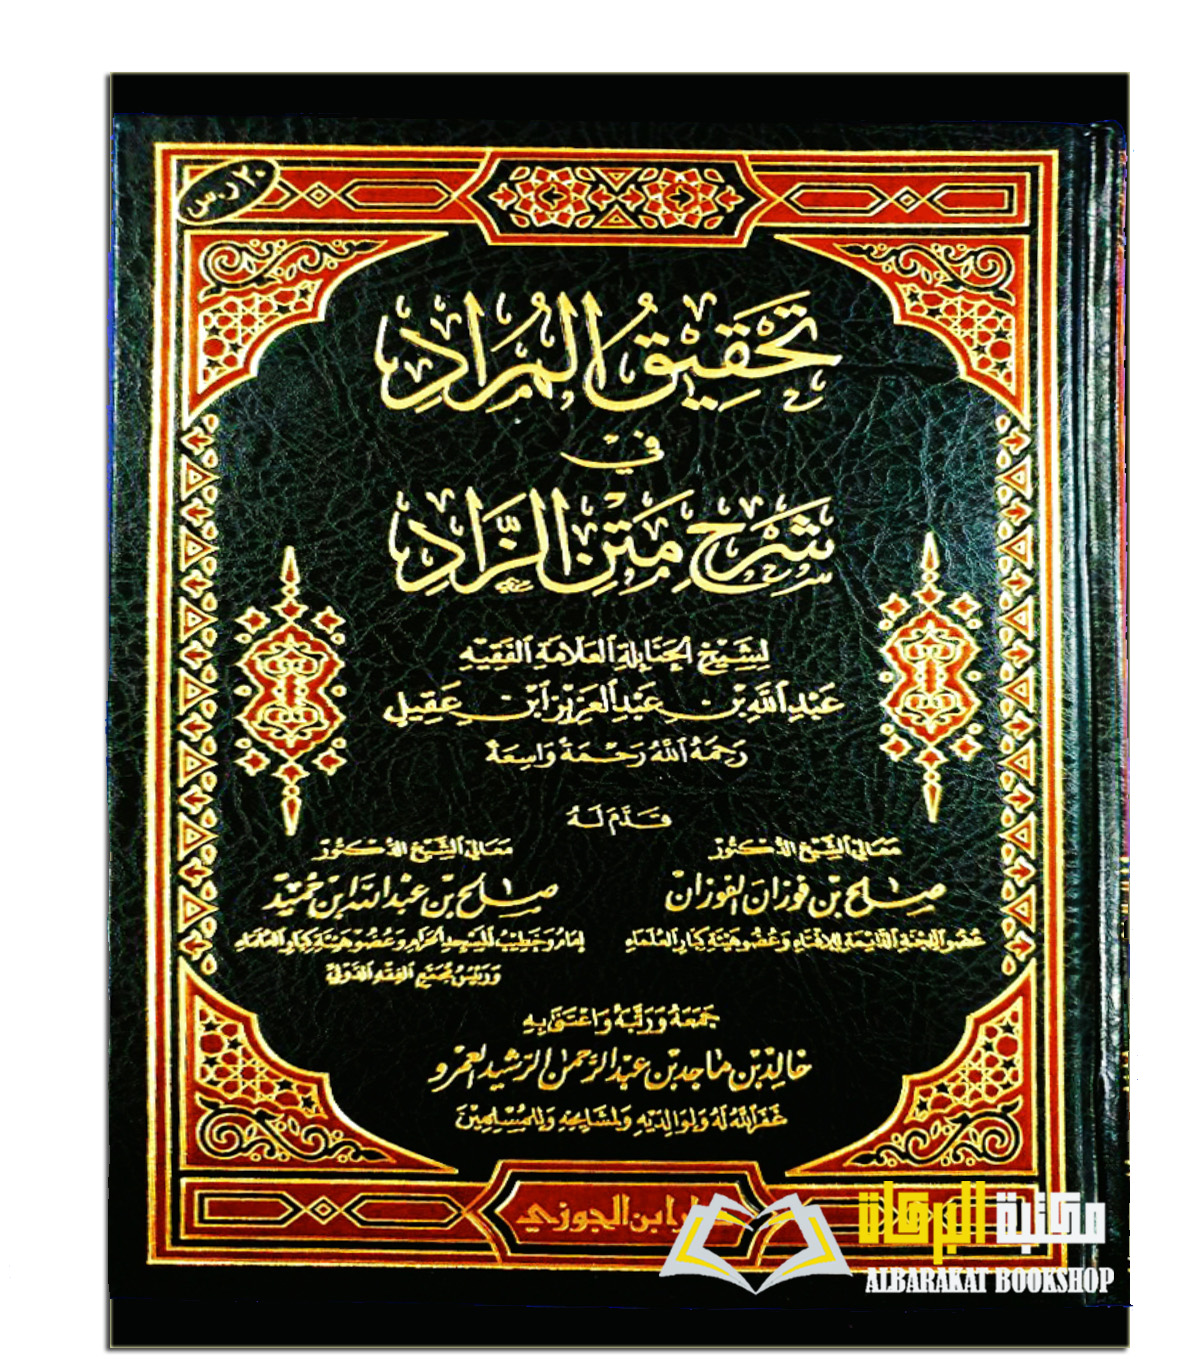 ٢٠ ر.س
تَحْقِيقُ المُرَادِ
فِي
شَرْحِ مَتْنِ الزَّادِ
لِشَيْخِ الحَنَابِلَةِ العَلَّامَةِ الفَقِيهِ
عَبْدِ اللَّهِ بْنِ عَبْدِ العَزِيزِ ابْنِ عَقِيلٍ
رَحِمَهُ اللَّهُ رَحْمَةً وَاسِعَةً
قَدَّمَ لَهُ
مَعَالِي الشَّيْخِ الدُّكْتُورِ
صَالِح بْن فَوْزَان الفَوْزَان
عُضْو اللَّجْنَةِ الدَّائِمَةِ لِلإِفْتَاءِ وَعُضْو هَيْئَةِ كِبَارِ العُلَمَاءِ
مَعَالِي الشَّيْخِ الدُّكْتُورِ
صَالِح بْن عَبْد اللَّه ابْن حُمَيْد
إِمَامُ وَخَطِيبُ المَسْجِدِ الحَرَامِ وَعُضْو هَيْئَةِ كِبَارِ العُلَمَاءِ
وَرَئِيسُ مَجْمَعِ الفِقْهِ الدَّوْلِيِّ
جَمَعَهُ وَرَتَّبَهُ وَاعْتَنَى بِهِ
خَالِد بْن مَاجِد بْن عَبْد الرَّحْمَن الرَّشِيد العَمْرو
غَفَرَ اللَّهُ لَهُ وَلِوَالِدَيْهِ وَلِمَشَايِخِهِ وَلِلْمُسْلِمِينَ
دار ابن الجوزي
مكتبة البركات
ALBARAKAT BOOKSHOP